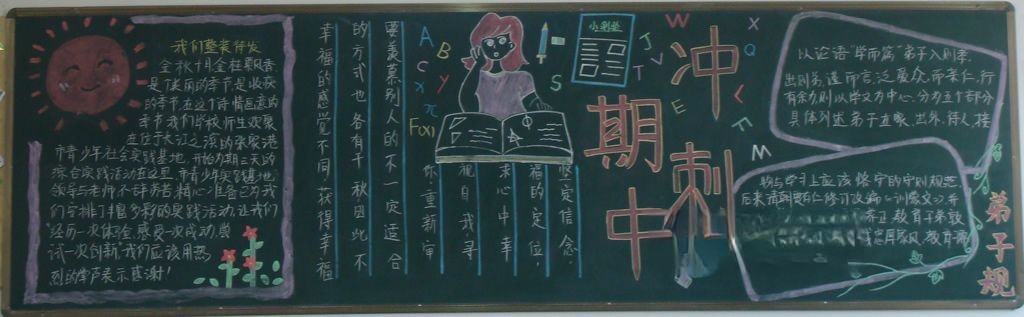 我们整装待发
金秋十月金桂飘香
是丁美丽的季节,是收获
的季节,在这个诗情画意的
季节我们学校师生欢聚
在位于长江之滨的张家港
市青少年社会实践基地,开始为期三天的
综合实践活动在这里,市青少年实践基地
领导与老师不辞劳苦精心准备已为我
们安排了丰富多彩的实践活动,让我们
"经历一次体会,感受一次成功,尝
试一次创新"我们应该用热
烈的掌声表示感谢!
要羡慕别人的不一定适合
的方式也各有千秋因此不
幸福的感觉不同,获得幸福
坚定信念。
福的定位,
求心中幸
视自我寻
你,重新审
A
B
C
y
x
π
F(x)
S
小测验
J
T
V
T
W
E
X
Q
L
F
M
冲
刺
期
中
以论语"学而篇"弟子入则孝,
出则弟,谨而言,泛爱众,而亲仁,行
有余力,则以学文为中心。分为五个部分
具体列述弟子在家、出外、待人、接
物与学习上应该恪守的守则规范
后来清朝贾存仁修订改编《训蒙文》并
弟子规